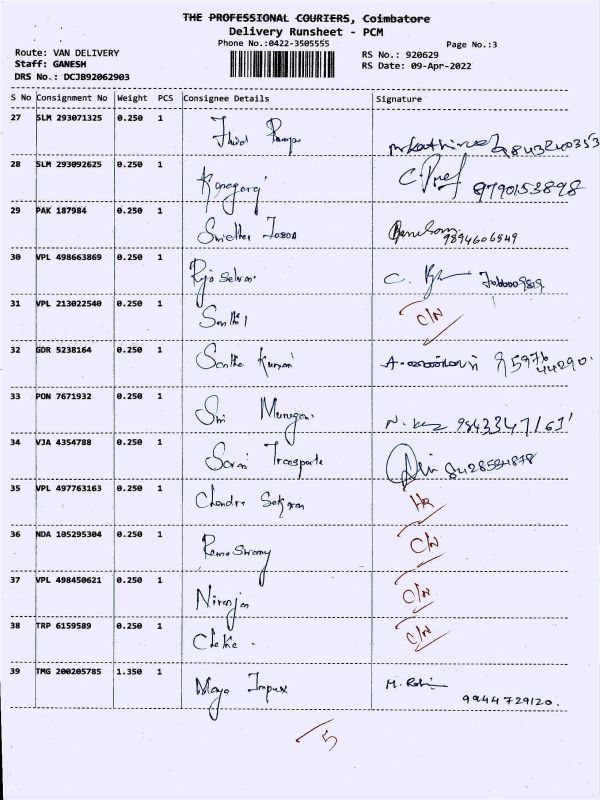 THE PROFESSIONAL COURIERS, Coimbatore
Delivery Runsheet - PCM
Phone No.:0422-3505555
Page No.:3
Route: VAN DELIVERY
Staff: GANESH
DRS No.: DCJB92062903
RS No.: 920629
RS Date: 09-Apr-2022
S No Consignment No Weight PCS Consignee Details Signature
27 SLM 293071325 0.250 1
9843240353
28 SLM 293092625 0.250 1 Kanagaraj
9790153898
29 PAK 187984 0.250 1 Sridhar
9894606549
30 VPL 498663869 0.250 1 Raja Selvan C.
31 VPL 213022540 0.250 1 Senthil C/N
32 GDR 5238164 0.250 1 Kumar
33 PON 7671932 0.250 1 Sri Murugan
34 VJA 4354788 0.250 1 Transports
35 VPL 497763163 0.250 1 Chandra Sekaran
36 NDA 105295304 0.250 1 Ramaswamy C/N
37 VPL 498450621 0.250 1 Niranjan C/N
38 TRP 6159589 0.250 1 C/N
39 TMG 200205785 1.350 1 Maya Impex
9944729120.
5